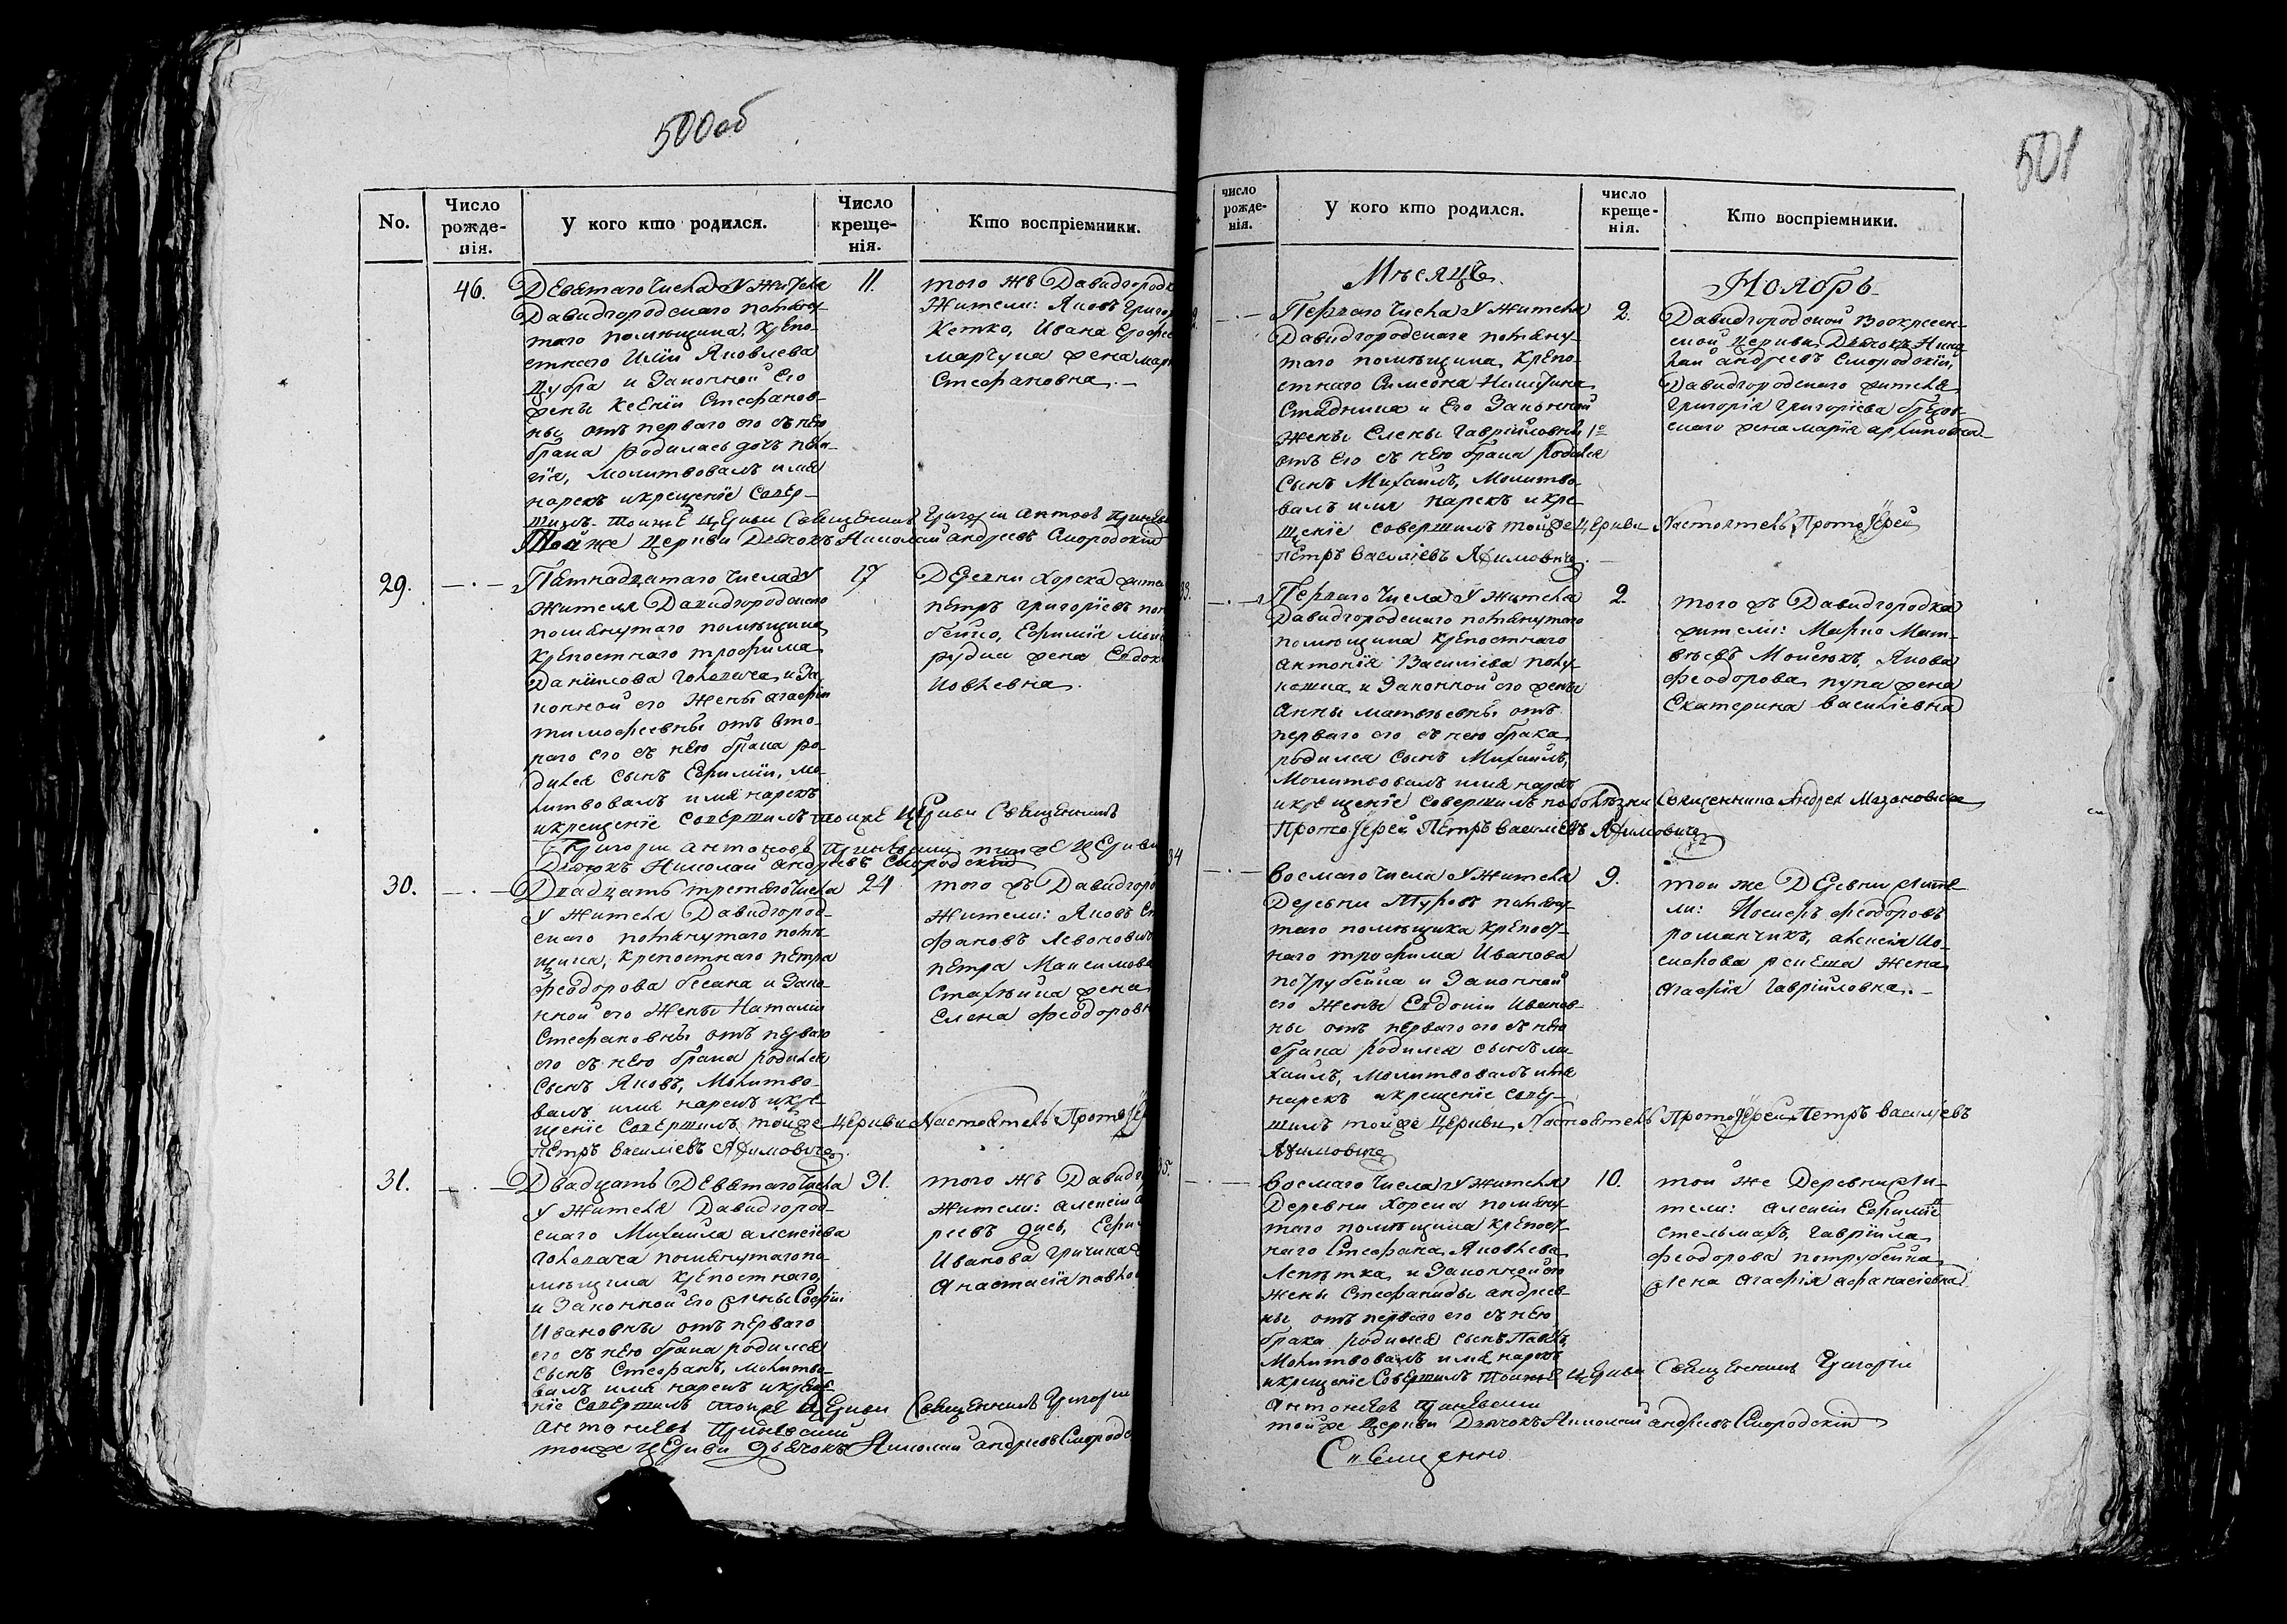 500об
No.
Число рожде-нія.
У кого кто родился.
Число креще-нія.
Кто воспріемники.
46.
Девятаго числа У жителя
Давидгородскаго помяну-
таго помѣщика, крѣпо-
стнаго Иліи Яковлева
Цубра и Законной Его
жены Ксеніи Стефанов-
ны отъ перваго его съ нею
брака родилась дочь Пела-
гія, молитвовалъ имя
нарекъ и крещеніе Совер-
шилъ тойже Церкви Священникъ Григорій Антоновъ
Тойже Церкви Дьячокъ Николай Андреевъ Смородскій
11.
того жъ Давидгородка
Жители: Яковъ Григор
Кетко, Ивана Ерофе
марчука жена мар
Стефановна.
29.
Пятнадцатаго числа У
жителя Давидгородскаго
помянутаго помѣщика
крѣпостнаго трофима
Даніилова Головача и За-
конной его Жены Агафіи
тимофеевны отъ вто-
раго его съ нею брака ро-
дился сынъ Ефимій, мо-
литвовалъ имя нарекъ
и крещеніе совершилъ тойже Церкви Священникъ
Григорій Антоновъ тойже Церкви
Дьячокъ Николай Андреевъ Смородскій
17
Деревни Хорска жите
петръ григоріевъ пот
бейко, Ефимія мои
рудка жена Евдок
Иовлевна.
30.
Двадцать третяго числа
У жителя Давидгород-
скаго помянутаго помѣ-
щика, крепостнаго петра
феодорова бесана и Зако-
нной его Жены Наталіи
Стефановны отъ перваго
его съ нею брака родился
Сынъ Яковъ, Молитво-
валъ имя нарекъ и кре-
щеніе Совершилъ тойже Церкви Настоятель Протоіер
Петръ Василіевъ Акимовичъ.
24
того жъ Давидгоро
жители: Яковъ Сте
фановъ Левоновичъ
петра Максимова
Стахѣйка жена
Елена феодоровн
31.
Двадцать Девятаго числа
У жителя Давидгород-
скаго Михаила алексіева
Головача помянутаго по-
мѣщика крѣпостнаго
и Законной Его жены Софіи
Ивановны отъ перваго
его съ нею брака родился
сынъ Стефанъ, молитво-
валъ имя нарекъ и креще-
ніе Совершилъ тойже Церкви Священникъ Григорій
Антоніевъ
тойже Церкви Дьячокъ Николай андреевъ Смородс
31.
того жъ Давидг
жители: алексій
реевъ
Иванова Гричика
Анастасія павло
501
число рожде-нія.
У кого кто родился.
число креще-нія.
Кто воспріемники.
Мѣсяцъ
Ноябрь
Перваго числа У жителя
Давидгородскаго помяну-
таго помѣщика, крепо-
стнаго Симеона Никитина
Стадника и Его Законной
Жены Елены Гавріиловны 1о
отъ Его съ нею брака родился
Сынъ Михаилъ, Молитво-
валъ имя нарекъ и кре-
щеніе совершилъ тойже Церкви Настоятель Протоіерей
петръ василіевъ Акимовичъ.
2.
Давидгородской Воскресен-
ской церкви Дьячокъ Нико-
лай андреевъ Смородскій,
Давидгородскаго жителя
григорія григоріева
скаго жена марія архиповна
33.
Перваго числа У жителя
Давидгородскаго помянутаго
помѣщика крѣпостнаго
антонія Василіева полу-
кошка и Законной его жены
Анны матвѣевны отъ
перваго его съ нею брака
родился сынъ Михаилъ,
Молитвовалъ имя нарекъ
и крещеніе совершилъ по болѣзни Священника Андрея
Протоіерей Петръ василіевъ Акимовичъ
2.
того жъ Давидгородка
жители: Марко Мат-
вѣевъ Мойсюкъ, Якова
феодорова пупа жена
Екатерина василіевна
34
восмаго числа У жителя
Деревни Туровъ помяну-
таго помѣщика крѣпост-
наго трофима Иванова
потрубейка и Законной
его жены Евдокіи Иванов-
ны отъ перваго его съ нею
брака родился сынъ ми-
хаилъ, молитвовалъ имя
нарекъ и крещеніе совер-
шилъ тойже Церкви, Настоятель Протоіерей Петръ василіевъ
Акимовичъ
9.
той же Деревни жите-
ли: Иосифъ феодоровъ
романчикъ, алексія Ио-
сифова жена
Агафія Гавріиловна.
35.
восмаго числа У жителя
Деревни Хорска помяну-
таго помѣщика крѣпост-
наго Стефана Яковлева
Лепѣтка и Законной его
жены Стефаниды андреев-
ны отъ перваго его съ нею
брака родился сынъ Павлъ,
Молитвовалъ имя нарекъ
и крещеніе Совершилъ тойже Церкви Священникъ Григорій
Антоніевъ
тойже Церкви Дьячокъ Николай андреевъ Смородскій
10.
той же Деревни жи-
тели: алексій Ефимі
стельмахъ, гавріила
феодорова потрубейка
жена Агафія афанасіевна
Священно